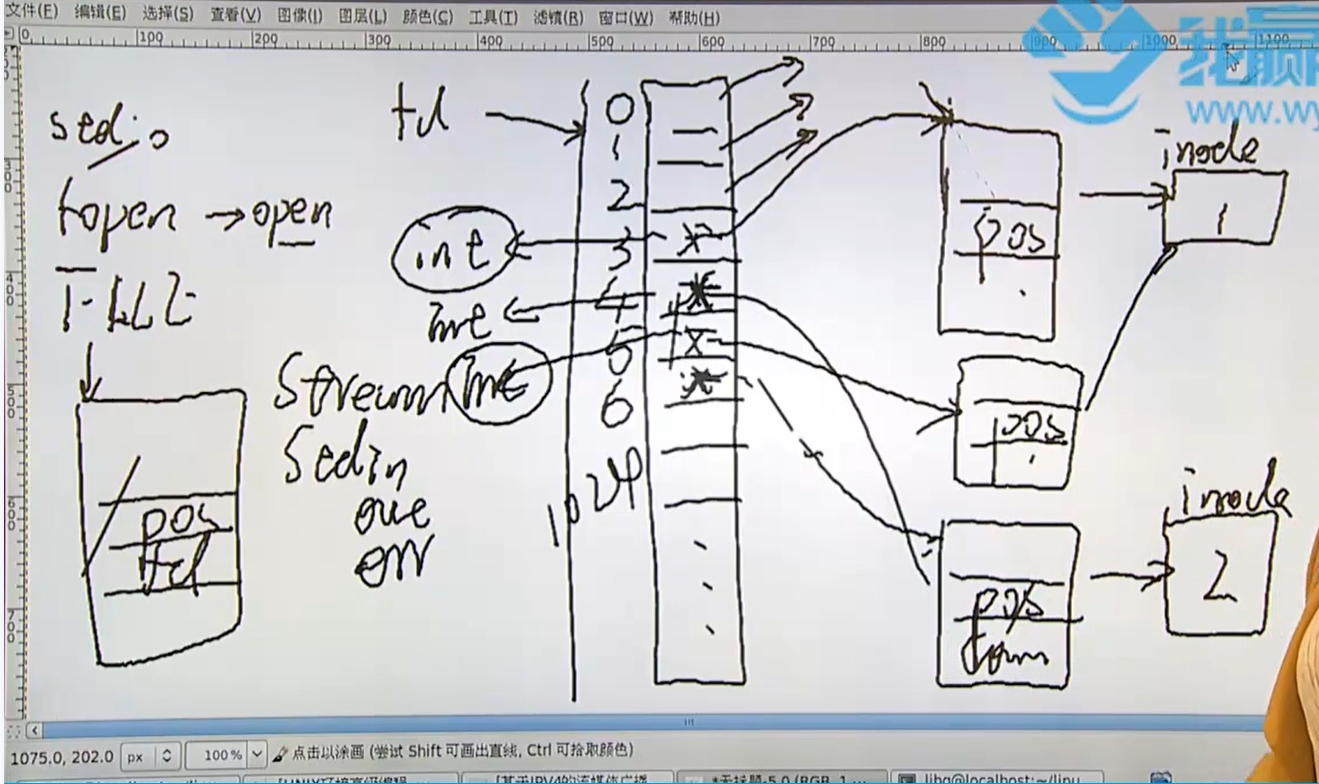 文件(F) 编辑(E) 选择(S) 查看(V) 图像(I) 图层(L) 颜色(C) 工具(T) 滤镜(R) 窗口(W) 帮助(H)
0 100 200 300 400 500 600 700 800 900 1000 1100
我赢
www.wy
stdio
fopen → open
FILE
pos
fd
fd
int
int
int
Stream
Stdin
out
err
0
1
2
3
4
5
6
1024
pos
pos
pos
inode
1
inode
2
1075.0, 202.0 px 100% 点击以涂画 (尝试 Shift 可画出直线, Ctrl 可拾取颜色)
[UNIX环境高级编程
[基于IPV4的流媒体广播
*无标题-5.0 (RGB, 1
libg@localhost:~/linu